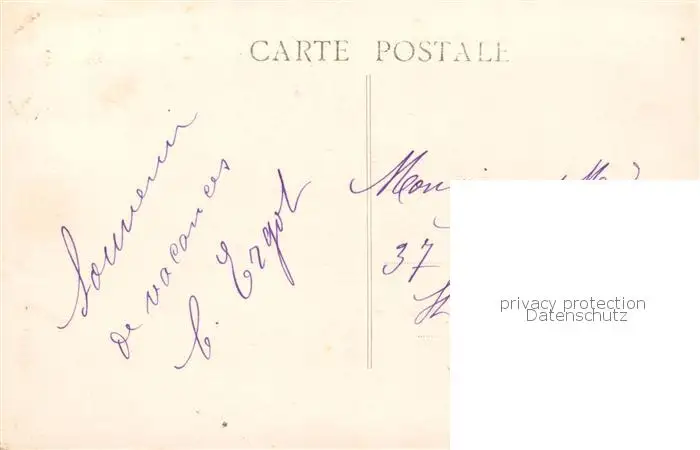 CARTE POSTALE
Souvenir
de vacances
C. Ergot
37
privacy protection
Datenschutz